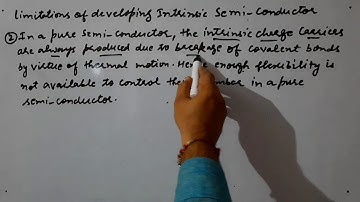 limitations of developing Intrinsic Semi-Conductor
② In a pure semi-conductor, the intrinsic charge carriers
are always produced due to breakage of covalent bonds
by virtue of thermal motion. enough flexibility is
not available to control the in a pure
semi-conductor.